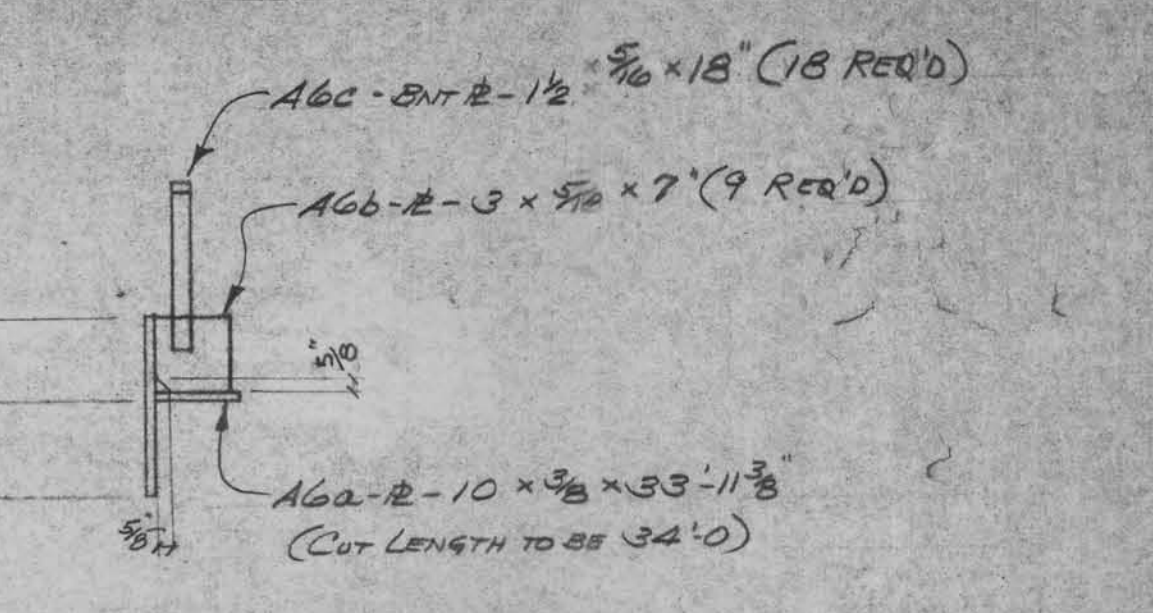 A6c - BNT ℞ - 1½ × 5/16 × 18" (18 REQ'D)
A6b - ℞ - 3 × 5/16 × 7" (9 REQ'D)
5/8"
A6a - ℞ - 10 × 3/8 × 33'-11 3/8"
(CUT LENGTH TO BE 34'-0)
5/8"